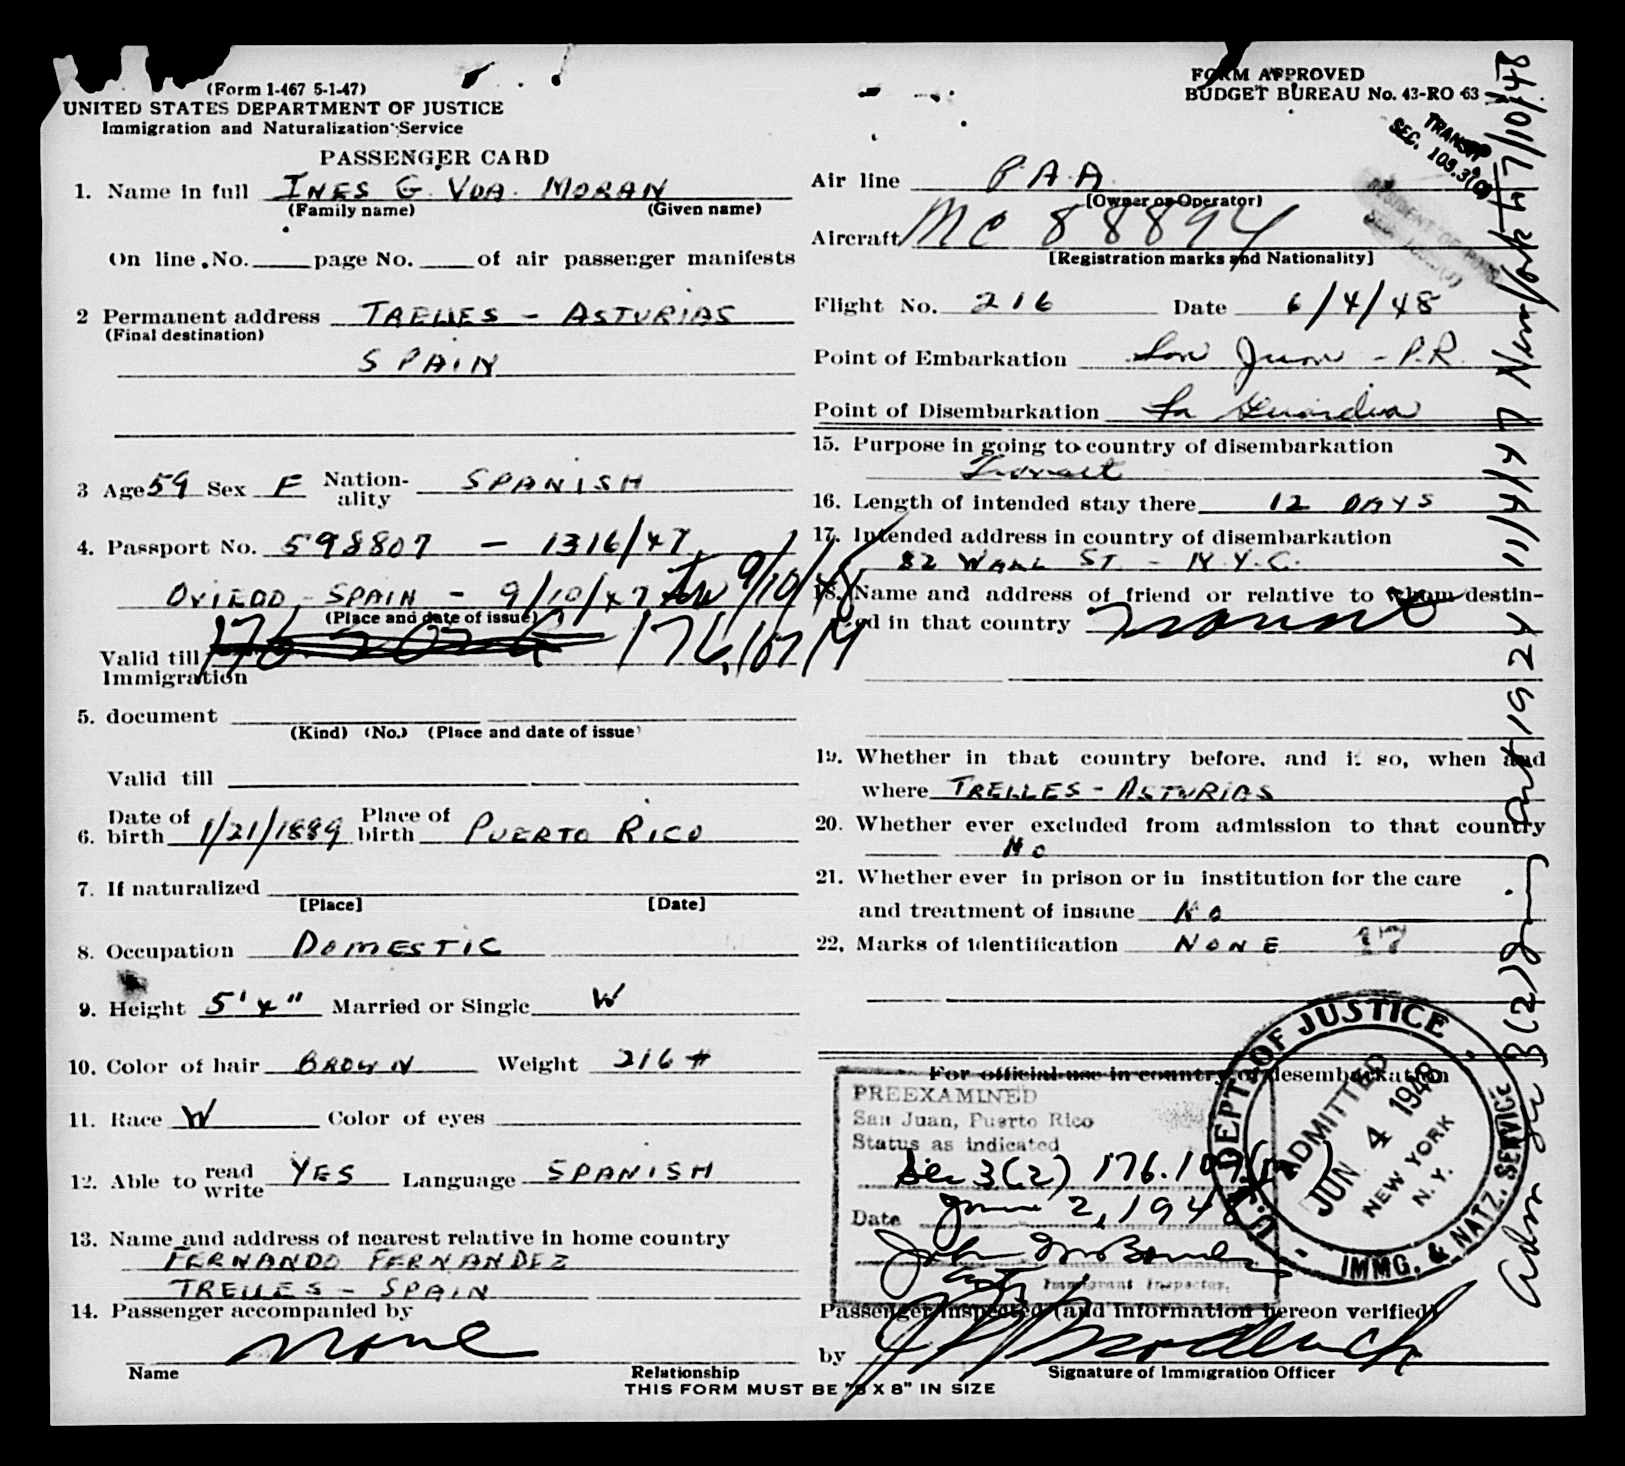 (Form 1-467 5-1-47)
UNITED STATES DEPARTMENT OF JUSTICE
Immigration and Naturalization Service
PASSENGER CARD
1. Name in full INES G. VDA. MORAN
(Family name) (Given name)
On line No. page No. of air passenger manifests
2 Permanent address TRELLES - ASTURIAS
(Final destination)
SPAIN
3 Age 59 Sex F Nation-ality SPANISH
4. Passport No. 598807 - 1316/47
OVIEDO, - SPAIN - 9/10/47 9/10/48
(Place and date of issue)
Valid till 176.107
Immigration
5. document
(Kind) (No.) (Place and date of issue)
Valid till
6. Date of birth 1/21/1889 Place of birth PUERTO RICO
7. If naturalized
[Place] [Date]
8. Occupation DOMESTIC
9. Height 5'4" Married or Single W
10. Color of hair BROWN Weight 216#
11. Race W Color of eyes
12. Able to read write YES Language SPANISH
13. Name and address of nearest relative in home country
FERNANDO FERNANDEZ
TRELLES - SPAIN
14. Passenger accompanied by
None
Name Relationship
THIS FORM MUST BE "8 X 8" IN SIZE
FORM APPROVED
BUDGET BUREAU No. 43-RO 63
TRANSIT
SEC. 103.3(c)
Air line P.A.A.
[Owner or Operator]
Aircraft NC 88894
[Registration marks and Nationality]
Flight No. 216 Date 6/4/48
Point of Embarkation San Juan - P.R.
Point of Disembarkation La Guardia
15. Purpose in going to country of disembarkation
Transit
16. Length of intended stay there 12 DAYS
17. Intended address in country of disembarkation
82 WALL ST. - N.Y.C.
18. Name and address of friend or relative to whom destin-
ed in that country
19. Whether in that country before, and if so, when and
where TRELLES - ASTURIAS
20. Whether ever excluded from admission to that country
NO
21. Whether ever in prison or in institution for the care
and treatment of insane NO
22. Marks of identification NONE 17
For official use in country of desembarkation
PREEXAMINED
San Juan, Puerto Rico
Status as indicated
Sec 3(2) 176.107
Date June 2, 1948
Immigrant Inspector.
U.S. DEPT. OF JUSTICE
ADMITTED
JUN 4 1948
NEW YORK
N. Y.
IMMG. & NATZ. SERVICE
Passenger inspected (and information hereon verified)
by
Signature of Immigration Officer
Adm Sec 3(2) 1924 11/4/47 New York to 7/10/48